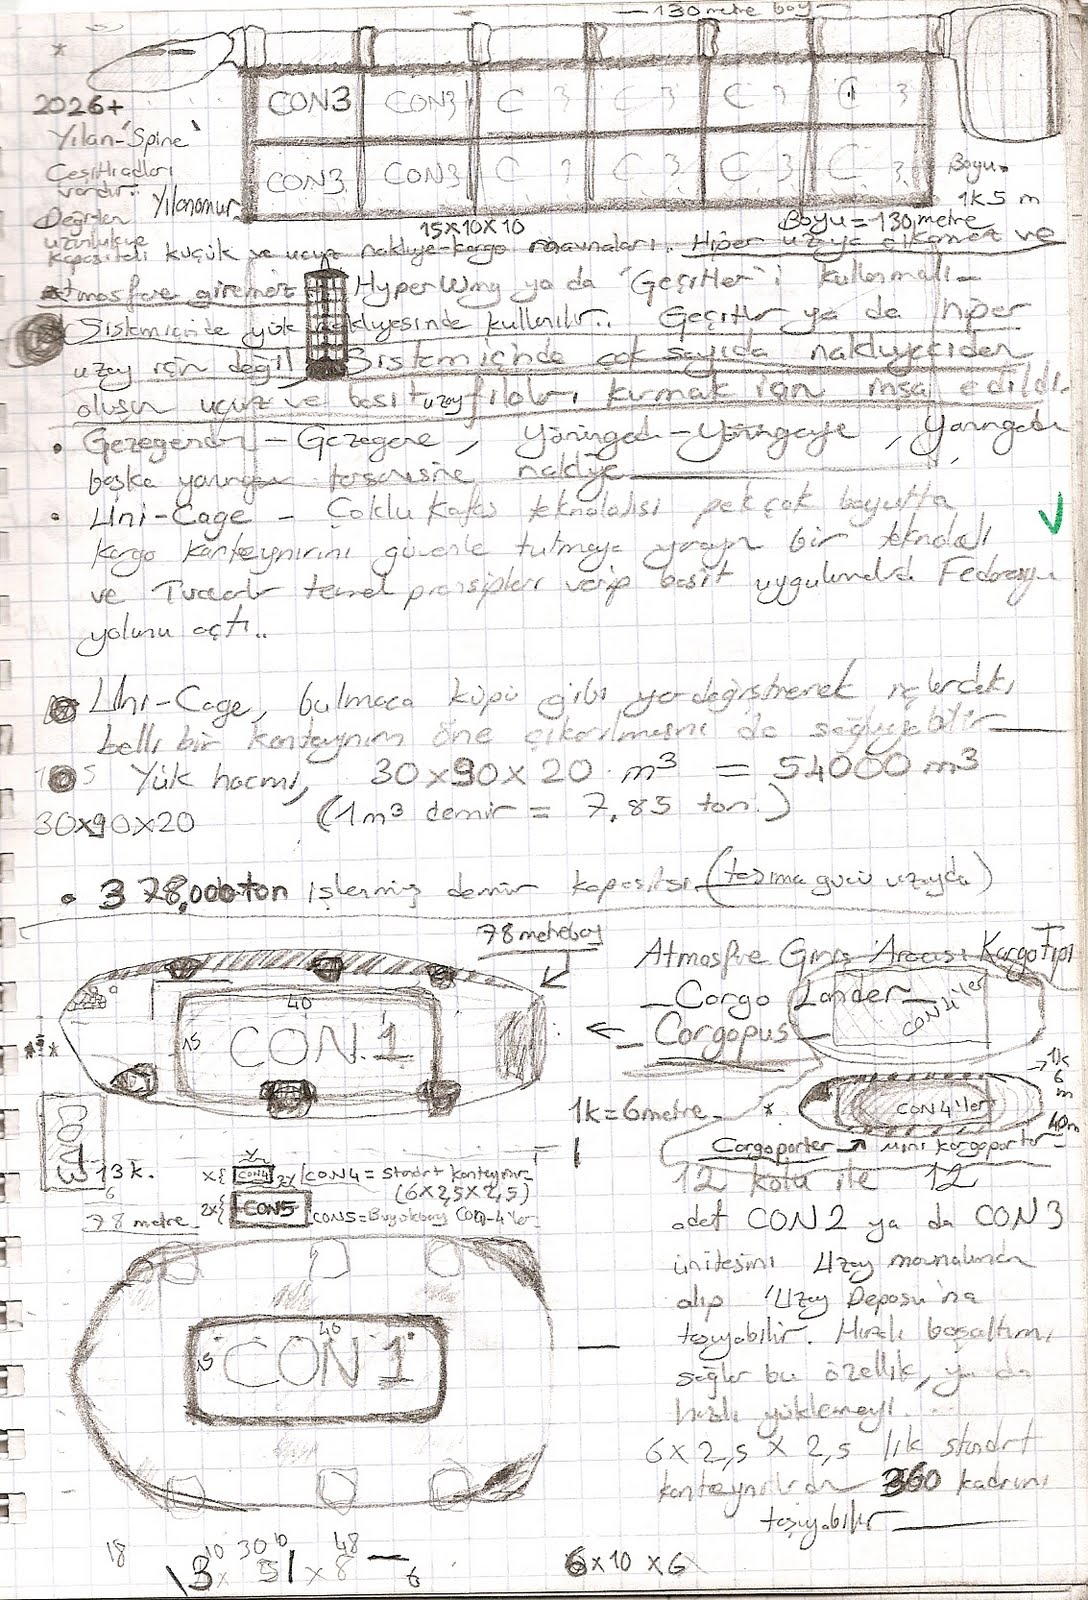 130 metre boy
CON3 CON3 C 3 C 3 C 3 C 3
CON3 CON3 C 3 C 3 C 3 C 3
2026+
Yılan-'Spine'
Çeşitli adları
vardır..
Değişken Yılanomur
uzunlukve
kapasiteli
Boyu.
1k5 m
15x10x10
Boyu = 130 metre
küçük ve ucuz nakliye-kargo mavnaları. Hiper uzaya çıkamaz ve
Atmosfere giremez HyperWing ya da 'Geçitler'i kullanmalı-
Sistemiçinde yük nakliyesinde kullanılır.. Geçitler ya da hiper
uzay için değil! Sistemiçinde çok sayıda nakliyeciden
oluşan ucuz ve basit uzay filoları kurmak için inşa edildi.
• Gezegenden - Gezegene, Yörüngeden - Yörüngeye, Yörüngeden
başka yörünge tersanesine nakliye
• Uni-Cage - Çoklu Kafes teknolojisi pek çok boyutta
kargo konteynırını güvenle tutmaya yarayan bir teknoloji
ve temel prensipleri verip basit uygulamalarda Federasyon
yolunu açtı..
Uni-Cage, bulmaca küpü gibi yer değiştirerek içlerdeki
belli bir konteynırın öne çıkarılmasını da sağlayabilir
Yük hacmi, 30x90x20 m³ = 54000 m³
30x90x20 (1m³ demir = 7,85 ton.)
• 378,000 ton işlenmiş demir kapasitesi (taşıma gücü uzayda)
78 metre boy
Atmosfere Giriş Aracı: Kargo Tipi
Cargo Lander
CON4'ler
Cargopus
40
15 CON.1
1k = 6 metre
1k
6
m
CON4'ler
40m
Cargoporter → mini kargoporter
13 k.
6
78 metre
x{ CON4 2x CON4 = standart konteynır
(6x2,5x2,5)
2x{ CON5 CON5 = Büyükboy Con-4'ler
12 kolu ile 12
adet CON2 ya da CON3
ünitesini Uzay mavnalarından
alıp 'Uzay Deposu'na
taşıyabilir. Hızlı boşaltımı
sağlar bu özellik, ya da
hızlı yüklemeyi.
6 x 2,5 x 2,5 lik standart
konteynırlardan 360 kadarını
taşıyabilir
40
15 CON 1
18 10 30 48
3 x 51 x 8 6
6 x 10 x 6